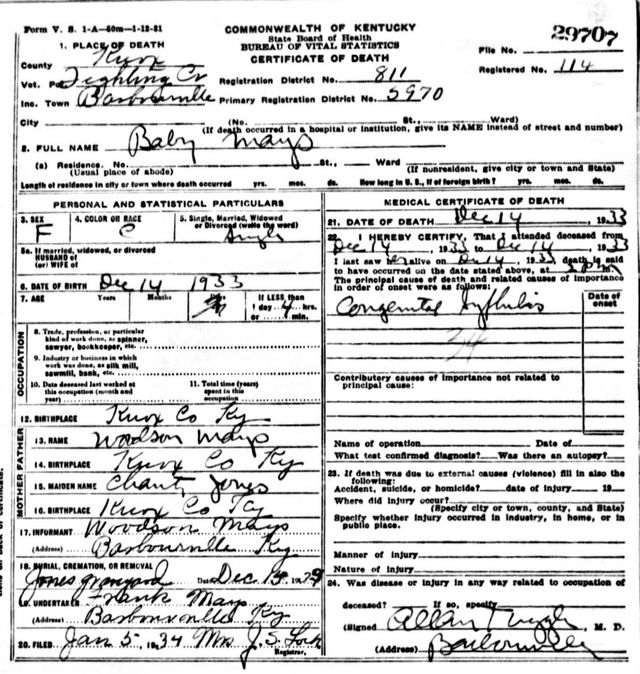 Form V. S. 1-A—50m—1-12-31
COMMONWEALTH OF KENTUCKY
State Board of Health
BUREAU OF VITAL STATISTICS
CERTIFICATE OF DEATH
29707
File No.
Registered No. 114
1. PLACE OF DEATH
County Knox
Vot. Pct
Inc. Town Barbourville
Registration District No. 811
Primary Registration District No. 5970
City (No. St., Ward)
(If death occurred in a hospital or institution, give its NAME instead of street and number)
2. FULL NAME Baby Mays
(a) Residence. No. St., Ward
(Usual place of abode) (If nonresident, give city or town and State)
Length of residence in city or town where death occurred yrs. mos. ds. How long in U. S., if of foreign birth? yrs. mos. ds.
PERSONAL AND STATISTICAL PARTICULARS
3. SEX 4. COLOR OR RACE 5. Single, Married, Widowed or Divorced (write the word)
F C Single
5a. If married, widowed, or divorced
HUSBAND of
(or) WIFE of
6. DATE OF BIRTH Dec 14 1933
7. AGE Years Months Days If LESS than
1 day 4 hrs.
or min.
OCCUPATION
8. Trade, profession, or particular
kind of work done, as spinner,
sawyer, bookkeeper, etc.
9. Industry or business in which
work was done, as silk mill,
sawmill, bank, etc.
10. Date deceased last worked at
this occupation (month and
year)
11. Total time (years)
spent in this
occupation
12. BIRTHPLACE Knox Co Ky
FATHER
13. NAME Woodson Mays
14. BIRTHPLACE Knox Co Ky
MOTHER
15. MAIDEN NAME Jones
16. BIRTHPLACE Knox Co Ky
17. INFORMANT Woodson Mays
(Address) Barbourville Ky
18. BURIAL, CREMATION, OR REMOVAL
Jones graveyard Date Dec 15 19
19. UNDERTAKER Frank Mays
(Address) Barbourville Ky
20. FILED Jan 5, 1934 Mrs J. S.
Registrar.
MEDICAL CERTIFICATE OF DEATH
21. DATE OF DEATH Dec 14, 1933
22. I HEREBY CERTIFY, That I attended deceased from
Dec 14, 1933 to Dec 14, 1933
I last saw her alive on Dec 14, 1933 death is said
to have occurred on the date stated above, at m.
The principal cause of death and related causes of importance
in order of onset were as follows:
Date of
onset
Congenital Syphilis
34
Contributory causes of importance not related to
principal cause:
Name of operation Date of
What test confirmed diagnosis? Was there an autopsy?
23. If death was due to external causes (violence) fill in also the
following:
Accident, suicide, or homicide? date of injury 19
Where did injury occur?
(Specify city or town, county, and State)
Specify whether injury occurred in industry, in home, or in
public place.
Manner of injury
Nature of injury
24. Was disease or injury in any way related to occupation of
deceased? If so, specify
(Signed Allan Tuggle, M. D.
(Address) Barbourville